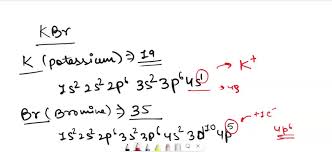 KBr
K (potassium) ⇒ 19 → K⁺
1s² 2s² 2p⁶ 3s² 3p⁶ 4s¹ → 4s
Br (Bromine) ⇒ 35 → +1e⁻
1s² 2s² 2p⁶ 3s² 3p⁶ 4s² 3d¹⁰ 4p⁵ 4p⁶